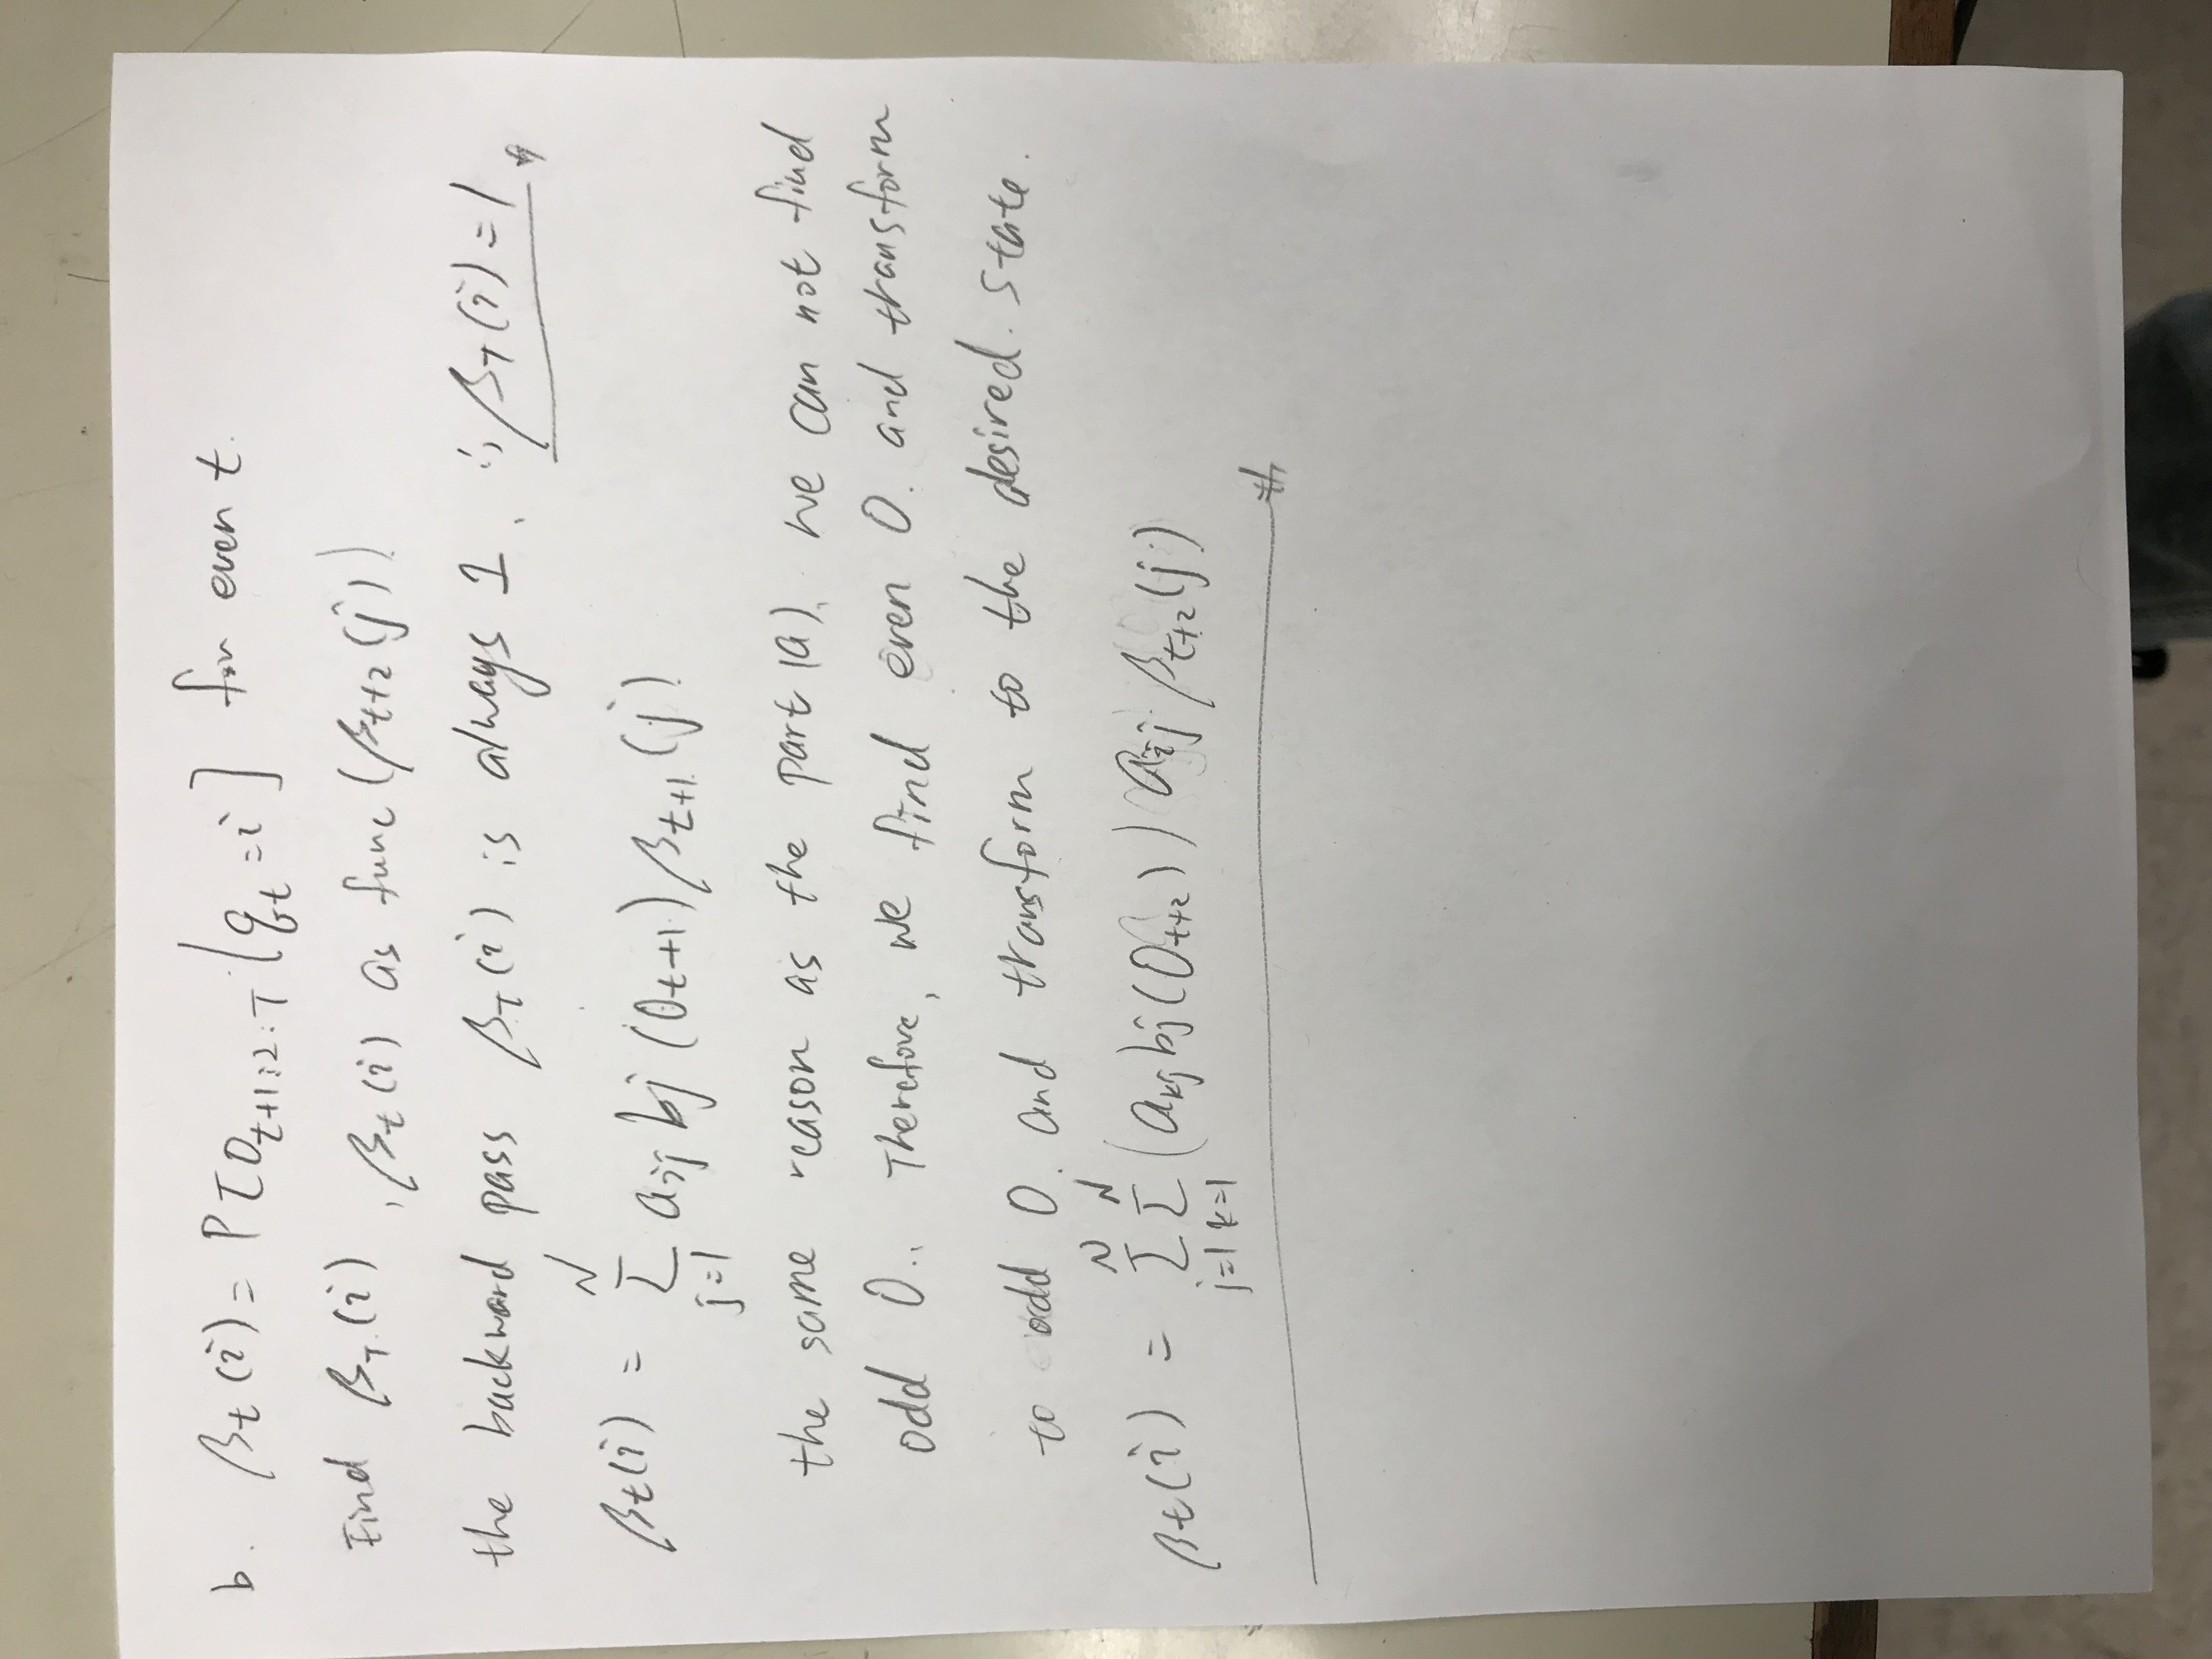 b. βt(i) = P[O_{t+1:2:T} | q_t = i] for even t.
Find β_T(i), βt(i) as func(β_{t+2}(j))
the backward pass β_T(i) is always 1. ∴ β_T(i) = 1
βt(i) = Σ_{j=1}^{N} a_{ij} bj(O_{t+1}) β_{t+1}(j)
the same reason as the part (a). we can not find
odd O.. Therefore, we find even O. and transform
to odd O. and transform to the desired state.
βt(i) = Σ_{j=1}^{N} Σ_{k=1}^{N} (a_{kj} bj(O_{t+2})) a_{ij} β_{t+2}(j)